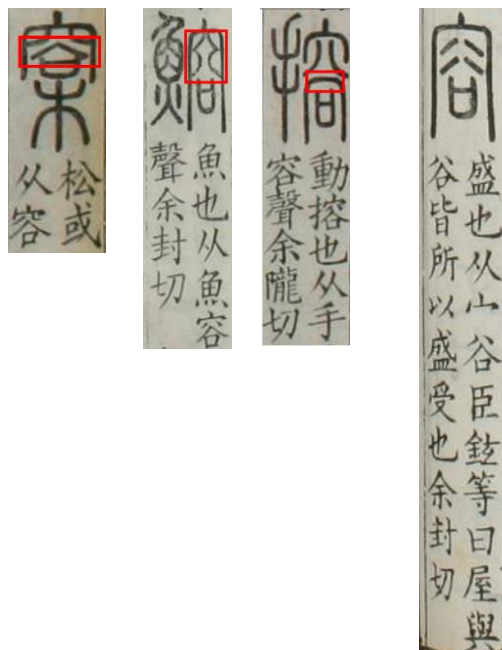 㮤
松或
从容
鰫
魚也从魚容
聲余封切
搈
動搈也从手
容聲余隴切
容
盛也从宀谷臣鉉等曰屋與
谷皆所以盛受也余封切